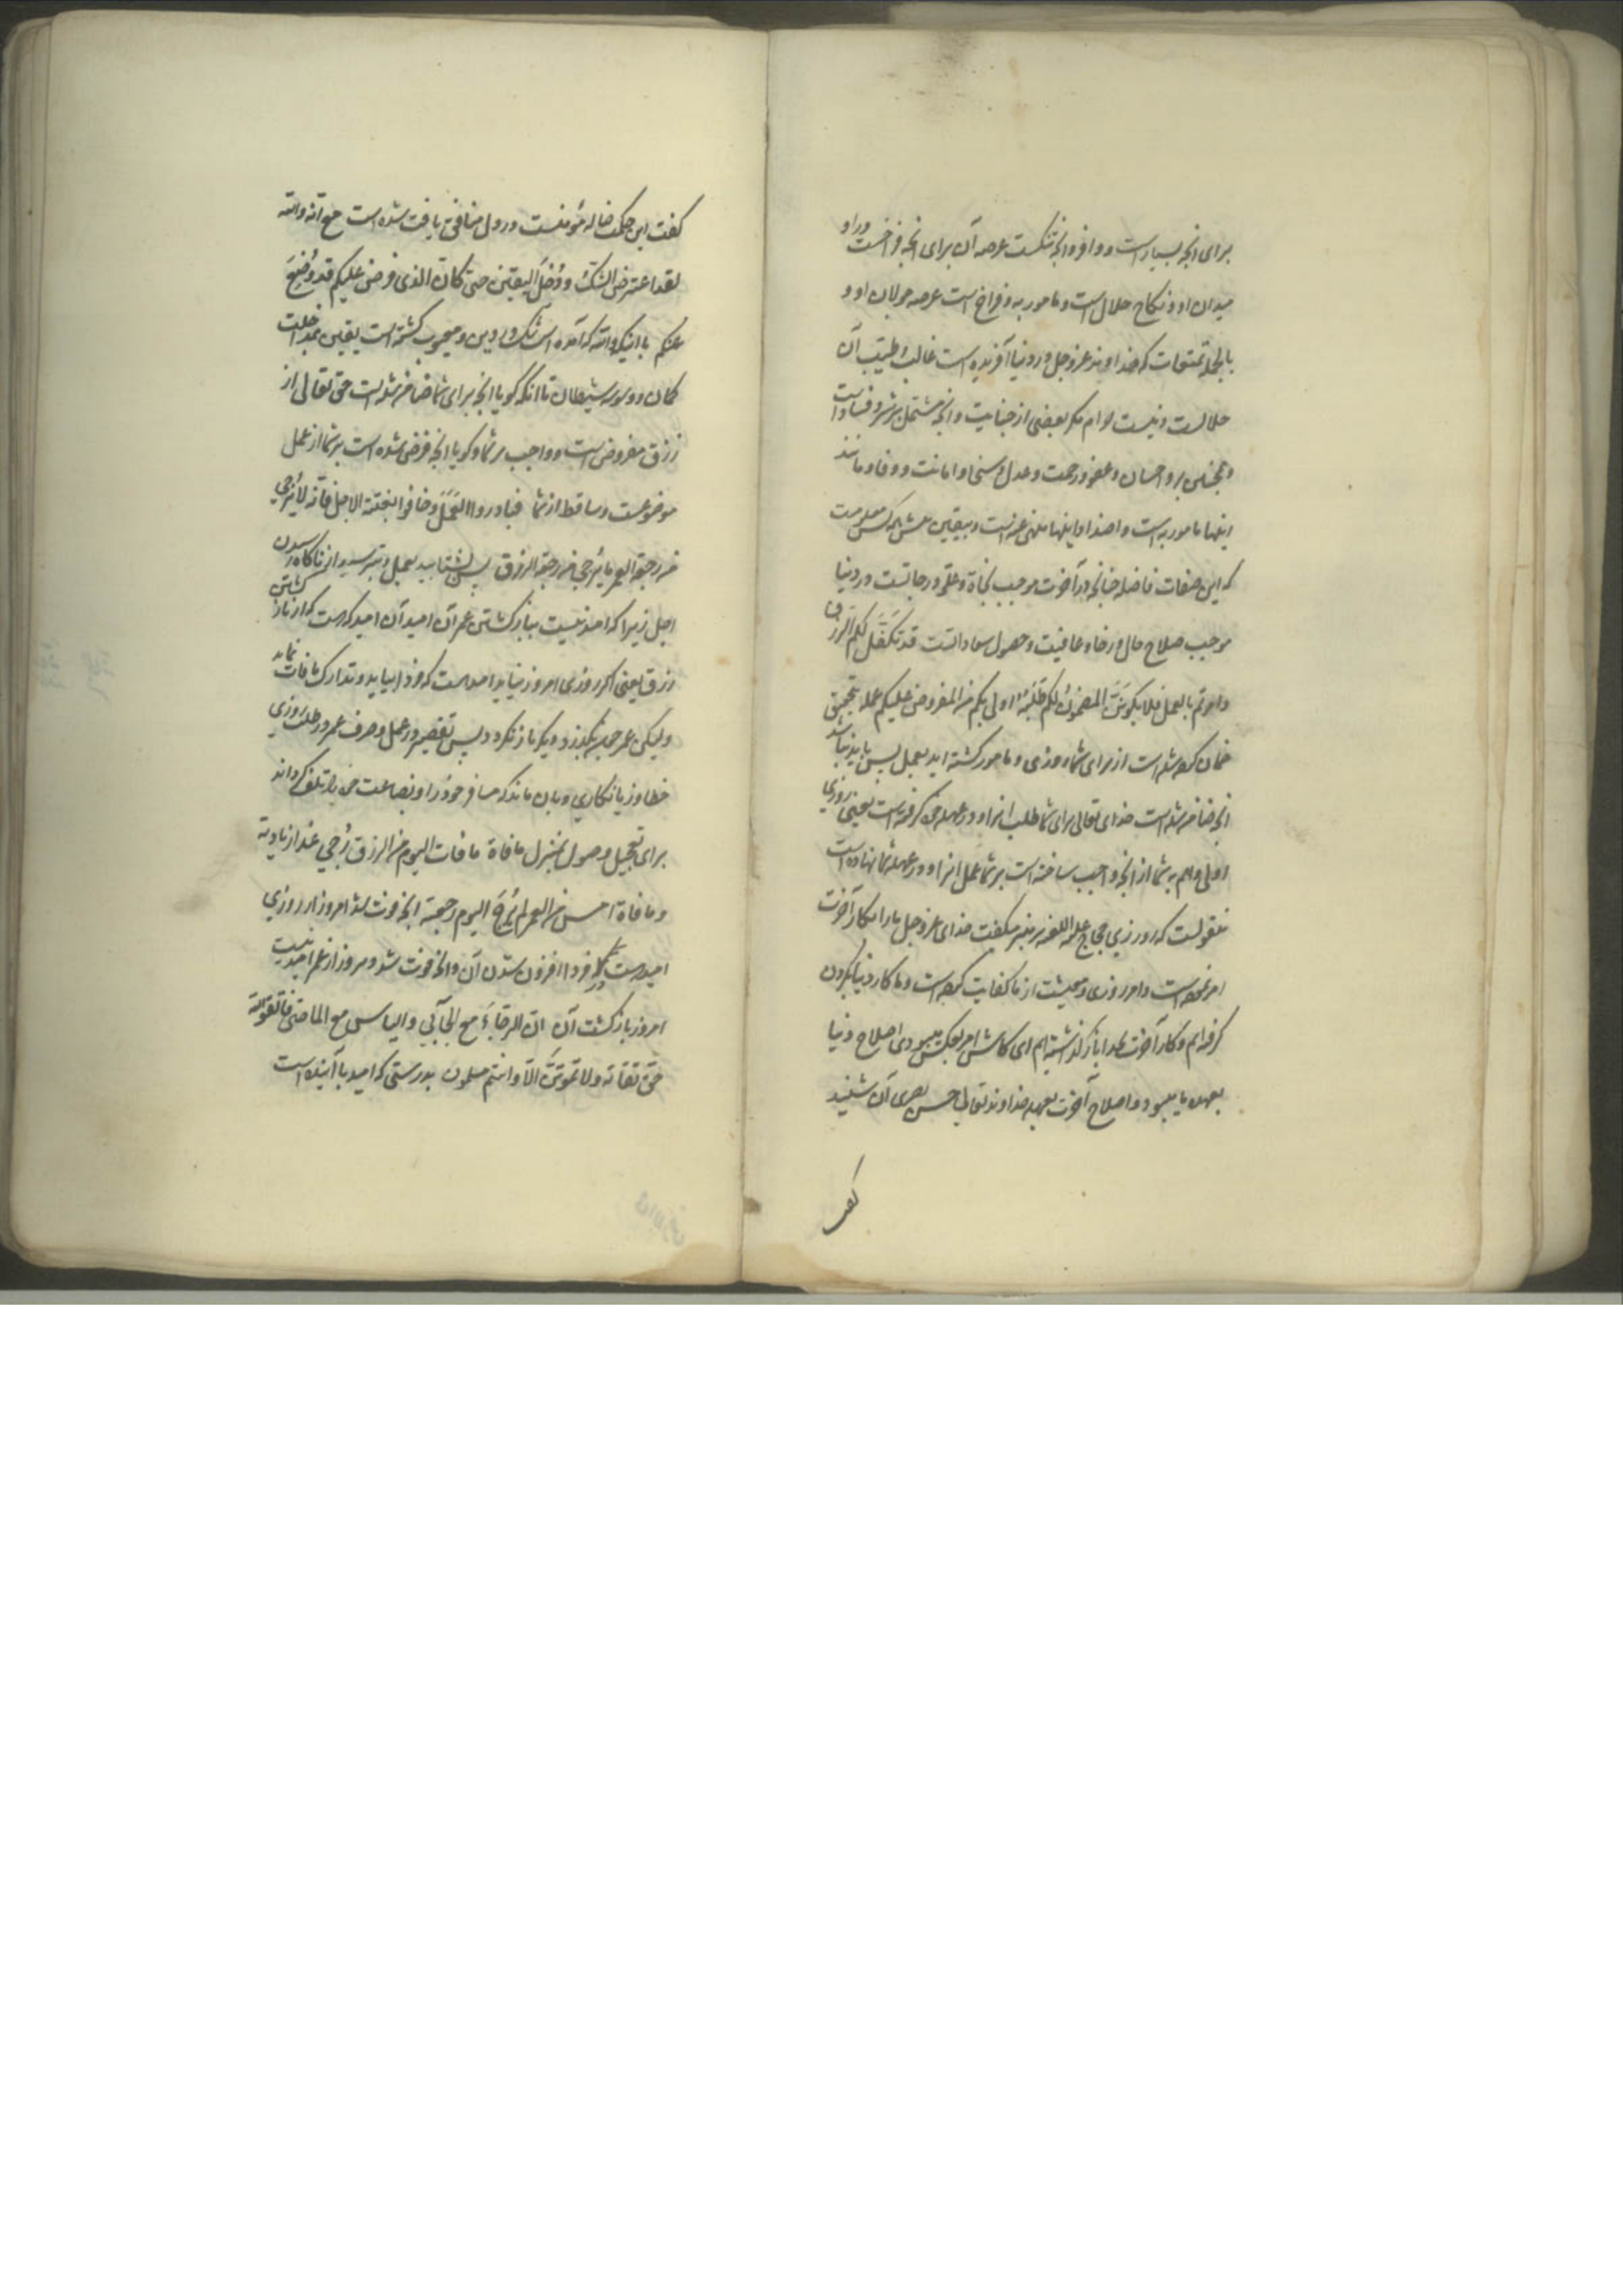 برای انچه بسیار است و وافر و انچه تنگست عرصه آن برای انچه فراخست و راو
میدان او و نکاح حلال است و مامور به و فراخ است عرصه جولان او و
بالجمله تمتعات که خداوند عز و جل در دنیا آفریده است غالب و طیّب آن
حلالست و نیست حرام مگر بعضی از خبایث و انچه مشتمل بر شر و فساد است
و همچنین بر و احسان و عفو و رحمت و عدل و سخا و امانت و وفا و مانند
اینها مامور به است و اضداد اینها منهی عنه است و بیقین همه کس معلومست
که این صفات فاضله چنانچه در آخرت موجب نجاة و علّو درجاتست در دنیا
موجب صلاح حال و رفاه و عافیت و حصول سعاداتست قد تکفّل لکم الرزق
و امرتم بالعمل فلا یکوننّ المضمون لکم طلبه اولی بکم من المفروض علیکم عمله بتحقیق
ضمان کرده شده است از برای شما روزی و مامور کشته اید بعمل پس باید نباشد
انچه ضامن شده است خدای تعالی برای شما طلب انرا و در عهده خود کرفته است یعنی روزی
اولی و اهم به شما از انچه واجب ساخته است بر شما عمل انرا و در عهده شما نهاده است
منقولست که روزی حجاج علیه اللعنه بر منبر میکفت خدای عز و جل ما را بکار آخرت
امر نموده است و امر روزی و معیشت از ما کفایت کرده است و ما کار دنیا بکردن
کرفته ایم و کار آخرت بخدا باز کذاشته ایم ای کاش امر بعکس میبودی اصلاح دنیا
بعهده ما میبود و اصلاح آخرت بعهده خداوند تعالی حسن بصری آن شنید
کفت
کفت این حکمت ضاله مؤمنست در دل منافق یافت شده است مع انه والله
لقد اعترض الشکّ و دُخِلَ الیقین حتی کانّ الذی فرض علیکم قد وُضِعَ
عنکم با اینکه والله که آمده است شک در دین و معیوب کشته است یقین بمداخلت
کمان و وسوسه شیطان تا انکه کویا انچه برای شما ضامن شده است حق تعالی از
رزق مفروض است و واجب بر شما و کویا انچه فرض شده است بر شما از عمل
موضوعست و ساقط از شما فبادروا العَمَلَ و خافوا بغتة الاجل فانّه لا یُرجی
من رجعة العمر ما یُرجی من رجعة الرزق پس بشتابید بعمل و بترسید از ناکاه رسیدن
اجل زیرا که امید نیست بباز کشتن عمر آن امید آن امید که هست که از باز کشتن
رزق یعنی اکر روزی امروز نیاید امید هست که فردا بیاید و تدارک مافات نماید
و لیکن عمر چون بگذرد دیکر باز نکردد پس تقصیر در عمل و صرف عمر در طلب روزی
خطا و زیانکاری و بان ماند که مسافر خود را و بضاعت خود را تلف کرداند
برای تعجیل وصول بمنزل مافاة ما فات الیوم من الرزق رُجی غداً زیادته
و ما فاة امس من العمر لم یُرجَ الیوم رجعته انچه فوت شد امروز از روزی
امید هست که فردا افزون شدن آن و انچه فوت شد دیروز از عمر امید نیست
امروز باز کشت آن انّ الرجاءَ مع الجآئی و الیاس مع الماضی فاتقوا الله
حقّ تقاته و لا تموتنّ الّا و انتم مسلمون بدرستی که امید با آینده است